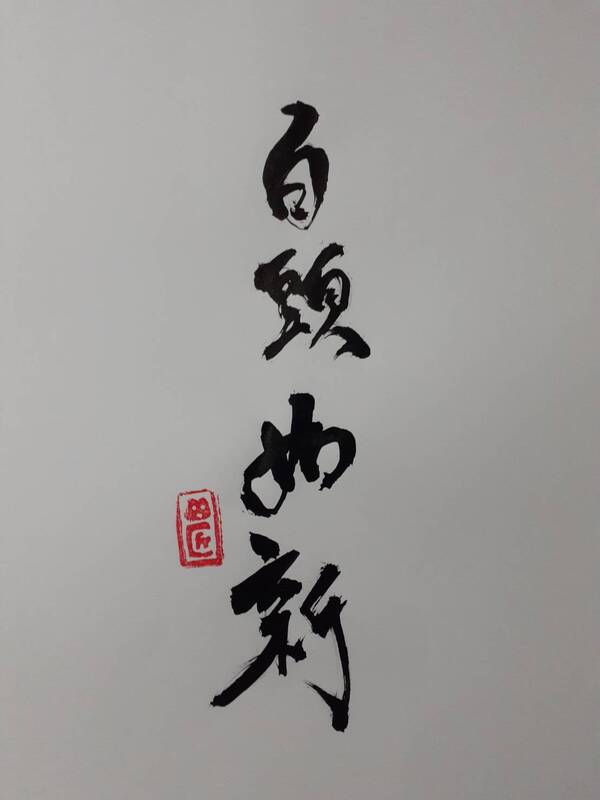 白頭如新